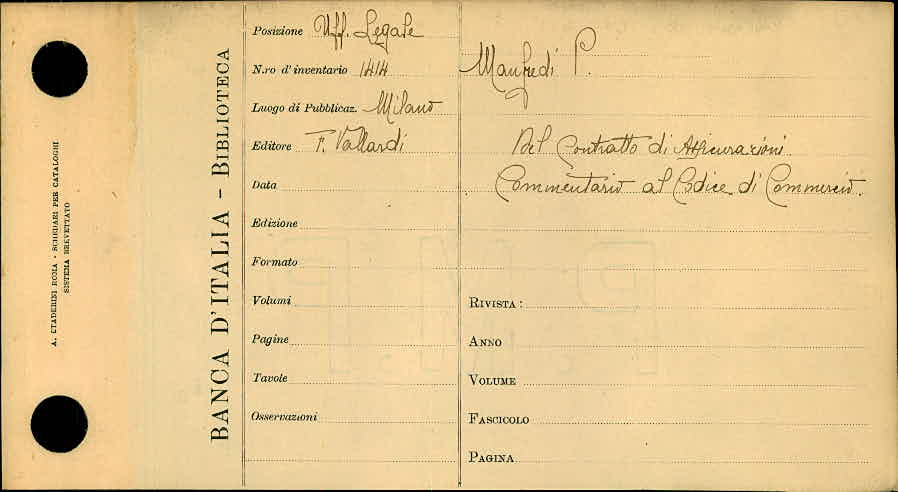 A. STADERINI ROMA - SCHEDARI PER CATALOGHI
SISTEMA BREVETTATO
BANCA D'ITALIA - BIBLIOTECA
Posizione Uff. Legale
N.ro d'inventario 1414
Luogo di Pubblicaz. Milano
Editore F. Vallardi
Data
Edizione
Formato
Volumi
Pagine
Tavole
Osservazioni
Manfredi P.
Del Contratto di Assicurazioni
Commentario al Codice di Commercio.
RIVISTA:
ANNO
VOLUME
FASCICOLO
PAGINA